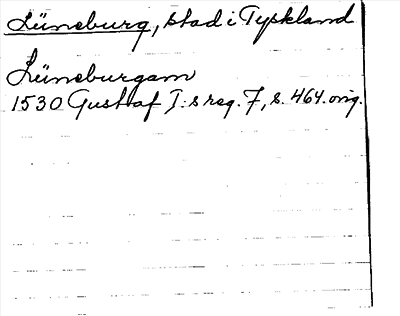 Lüneburg, stad i Tyskland
Lüneburgam
1530 Gustaf I:s reg. 7, s. 464. orig.